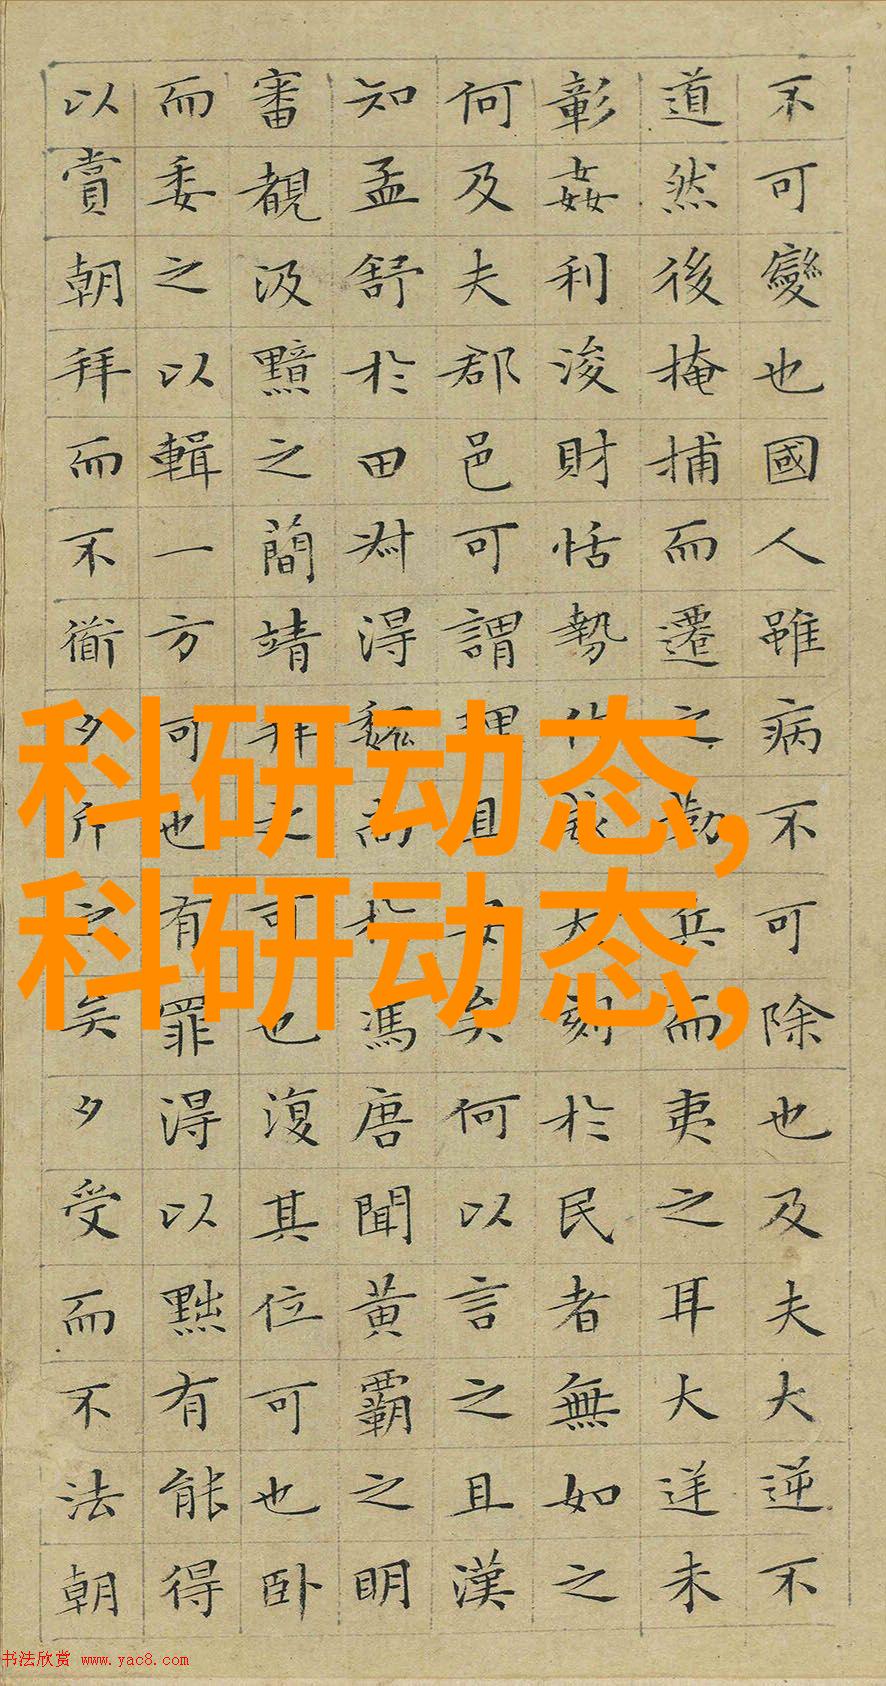 不可變也國人雖病不可除也及夫大逆不
道然後掩捕而遷之勒兵而夷之耳大逆未
彰姦利浚財恬勢作威大刻於民者無如之
何及夫郡邑可謂理且安矣何以言之且漢
知孟舒於田叔得魏尚於馮唐聞黃霸之明
審覩汲黯之簡靖拜之可也復其位可也卧
而委之以輯一方可也有罪得以黜有能得
以賞朝拜而不衟夕斥之矣夕受而不法朝
科研动态,
科研动态,
书法欣赏 www.yac8.com